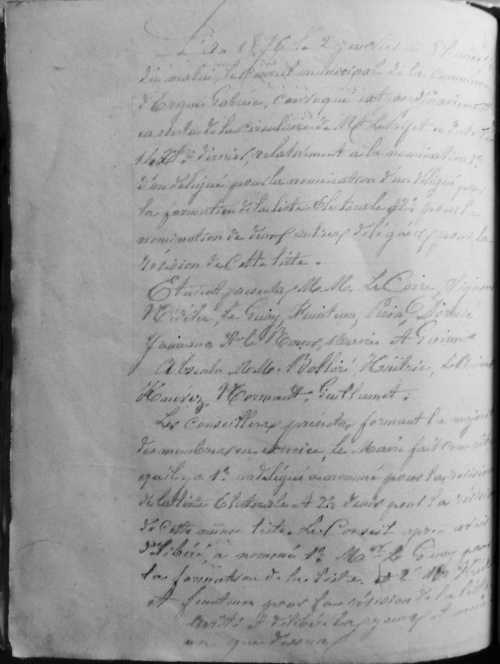 L'An 1876 le 2 janvier à 8 heures
du matin, le Conseil municipal de la Commune
d'Ergué Gabéric, convoqué extraordinairement
en vertu de la circulaire de Mr le Préfet en date
14 Xbre dernier, relativement a la nomination 1º
d'un délégué pour la nomination d'un délégué pour
la formation de la liste Electorale 2º pour la
nomination de deux autres délégués pour la
révision de Cette liste.
Etaient présents, M.M. Le Caire,
Nédélec, Le Guay, Feunteun,
Le Roux, A
Absents M.M. Bolloré,
Guillamet.
Les Conseillers présents, formant la majorité
des membres en exercice, le Maire fait
qu'il y a 1º un délégué a nommé pour la révision
de la liste Electorale et 2º deux pour la révision
de Cette même liste. Le Conseil après avoir
délibéré, a nommé 1º Mr Le Guay pour
la formation de la liste, et 2º Mr
et Feunteun pour la révision de la liste
arrêté et délibéré les jours, et
an que dessus